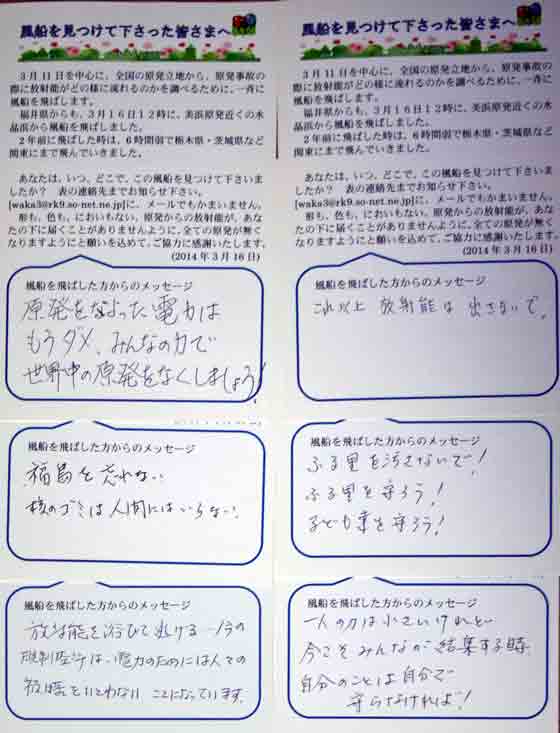 風船を見つけて下さった皆さまへ
３月１１日を中心に、全国の原発立地から、原発事故の
際に放射能がどの様に流れるのかを調べるために、一斉に
風船を飛ばします。
福井県からも、３月１６日１２時に、美浜原発近くの水
晶浜から風船を飛ばしました。
２年前に飛ばした時は、６時間弱で栃木県・茨城県など
関東にまで飛んでいきました。
あなたは、いつ、どこで、この風船を見つけて下さいま
したか？　表の連絡先までお知らせ下さい。
[waka3@rk9.so-net.ne.jp]に、メールでもかまいません。
形も、色も、においもない、原発からの放射能が、あな
たの下に届くことがありませんように、全ての原発が無く
なりますようにと願いを込めて、ご協力に感謝いたします。
(2014年３月16日)
風船を飛ばした方からのメッセージ
原発をなよった電力は
もうダメ、みんなの力で
世界中の原発をなくしましょう!
風船を飛ばした方からのメッセージ
福島を忘れない
核のゴミは人間にはいらない!
風船を飛ばした方からのメッセージ
放射能を浴びて
電力のためには人々の
ことになっています。
風船を見つけて下さった皆さまへ
３月１１日を中心に、全国の原発立地から、原発事故の
際に放射能がどの様に流れるのかを調べるために、一斉に
風船を飛ばします。
福井県からも、３月１６日１２時に、美浜原発近くの水
晶浜から風船を飛ばしました。
２年前に飛ばした時は、６時間弱で栃木県・茨城県など
関東にまで飛んでいきました。
あなたは、いつ、どこで、この風船を見つけて下さいま
したか？　表の連絡先までお知らせ下さい。
[waka3@rk9.so-net.ne.jp]に、メールでもかまいません。
形も、色も、においもない、原発からの放射能が、あな
たの下に届くことがありませんように、全ての原発が無く
なりますようにと願いを込めて、ご協力に感謝いたします。
(2014年３月16日)
風船を飛ばした方からのメッセージ
これ以上 放射能は 出さないで。
風船を飛ばした方からのメッセージ
ふる里を汚さないで!
ふる里を守ろう!
子ども達を守ろう!
風船を飛ばした方からのメッセージ
一人の力は小さいけれど
今こそみんなが結集する時
自分のことは自分で
守らなければ!